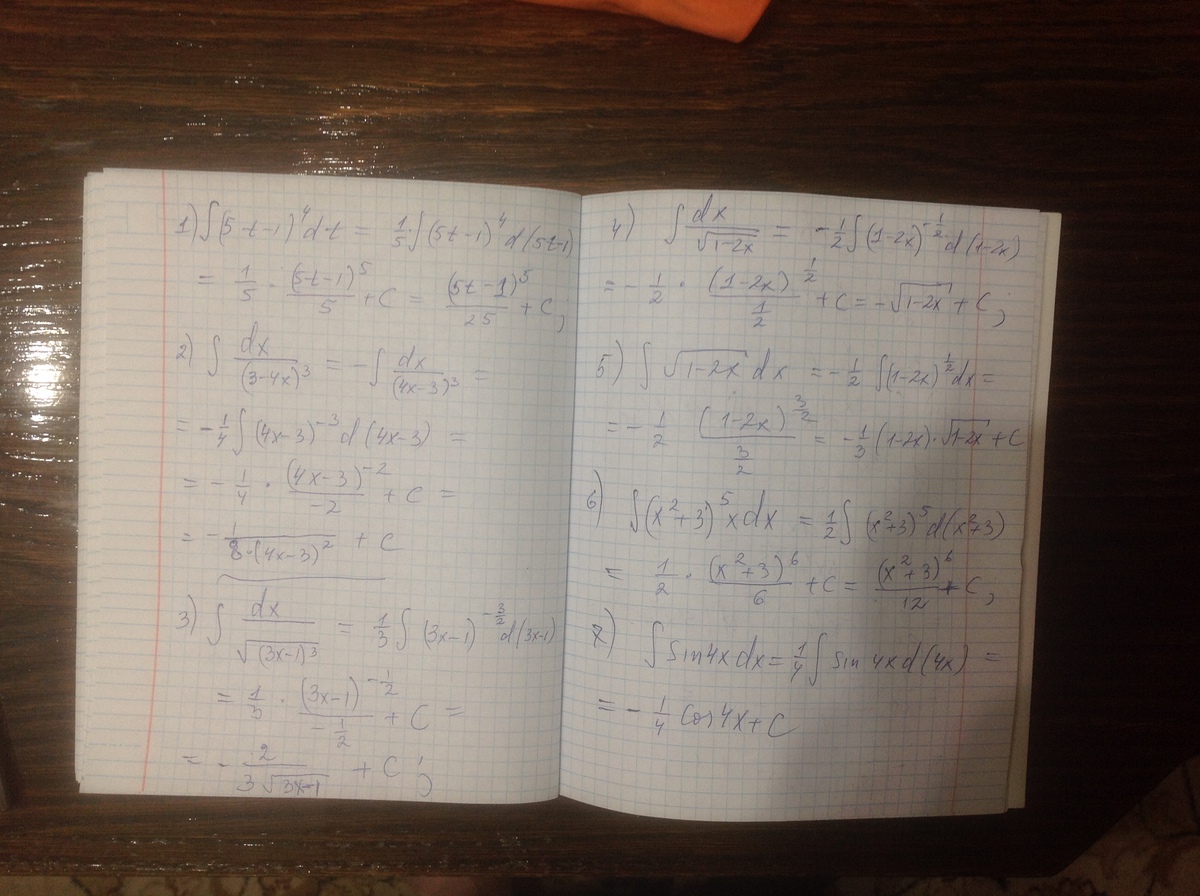 1) ∫(5t-1)^4 dt = 1/5 ∫(5t-1)^4 d(5t-1)
= 1/5 · (5t-1)^5/5 + C = (5t-1)^5/25 + C;
2) ∫ dx/(3-4x)^3 = -∫ dx/(4x-3)^3 =
= -1/4 ∫ (4x-3)^-3 d(4x-3) =
= -1/4 · (4x-3)^-2/-2 + C =
= - 1/8·(4x-3)^2 + C
3) ∫ dx/√(3x-1)^3 = 1/3 ∫ (3x-1)^-3/2 d(3x-1)
= 1/3 · (3x-1)^-1/2/-1/2 + C =
= - 2/3√3x-1 + C;
4) ∫ dx/√1-2x = -1/2 ∫(1-2x)^-1/2 d(1-2x)
= -1/2 · (1-2x)^1/2/1/2 + C = -√1-2x + C;
5) ∫ √1-2x dx = -1/2 ∫(1-2x)^1/2 dx =
= -1/2 (1-2x)^3/2/3/2 = -1/3 (1-2x)·√1-2x + C
6) ∫(x^2+3)^5 x dx = 1/2 ∫ (x^2+3)^5 d(x^2+3)
= 1/2 · (x^2+3)^6/6 + C = (x^2+3)^6/12 + C;
7) ∫ sin4x dx = 1/4 ∫ sin 4x d(4x) =
= -1/4 Cos4x + C